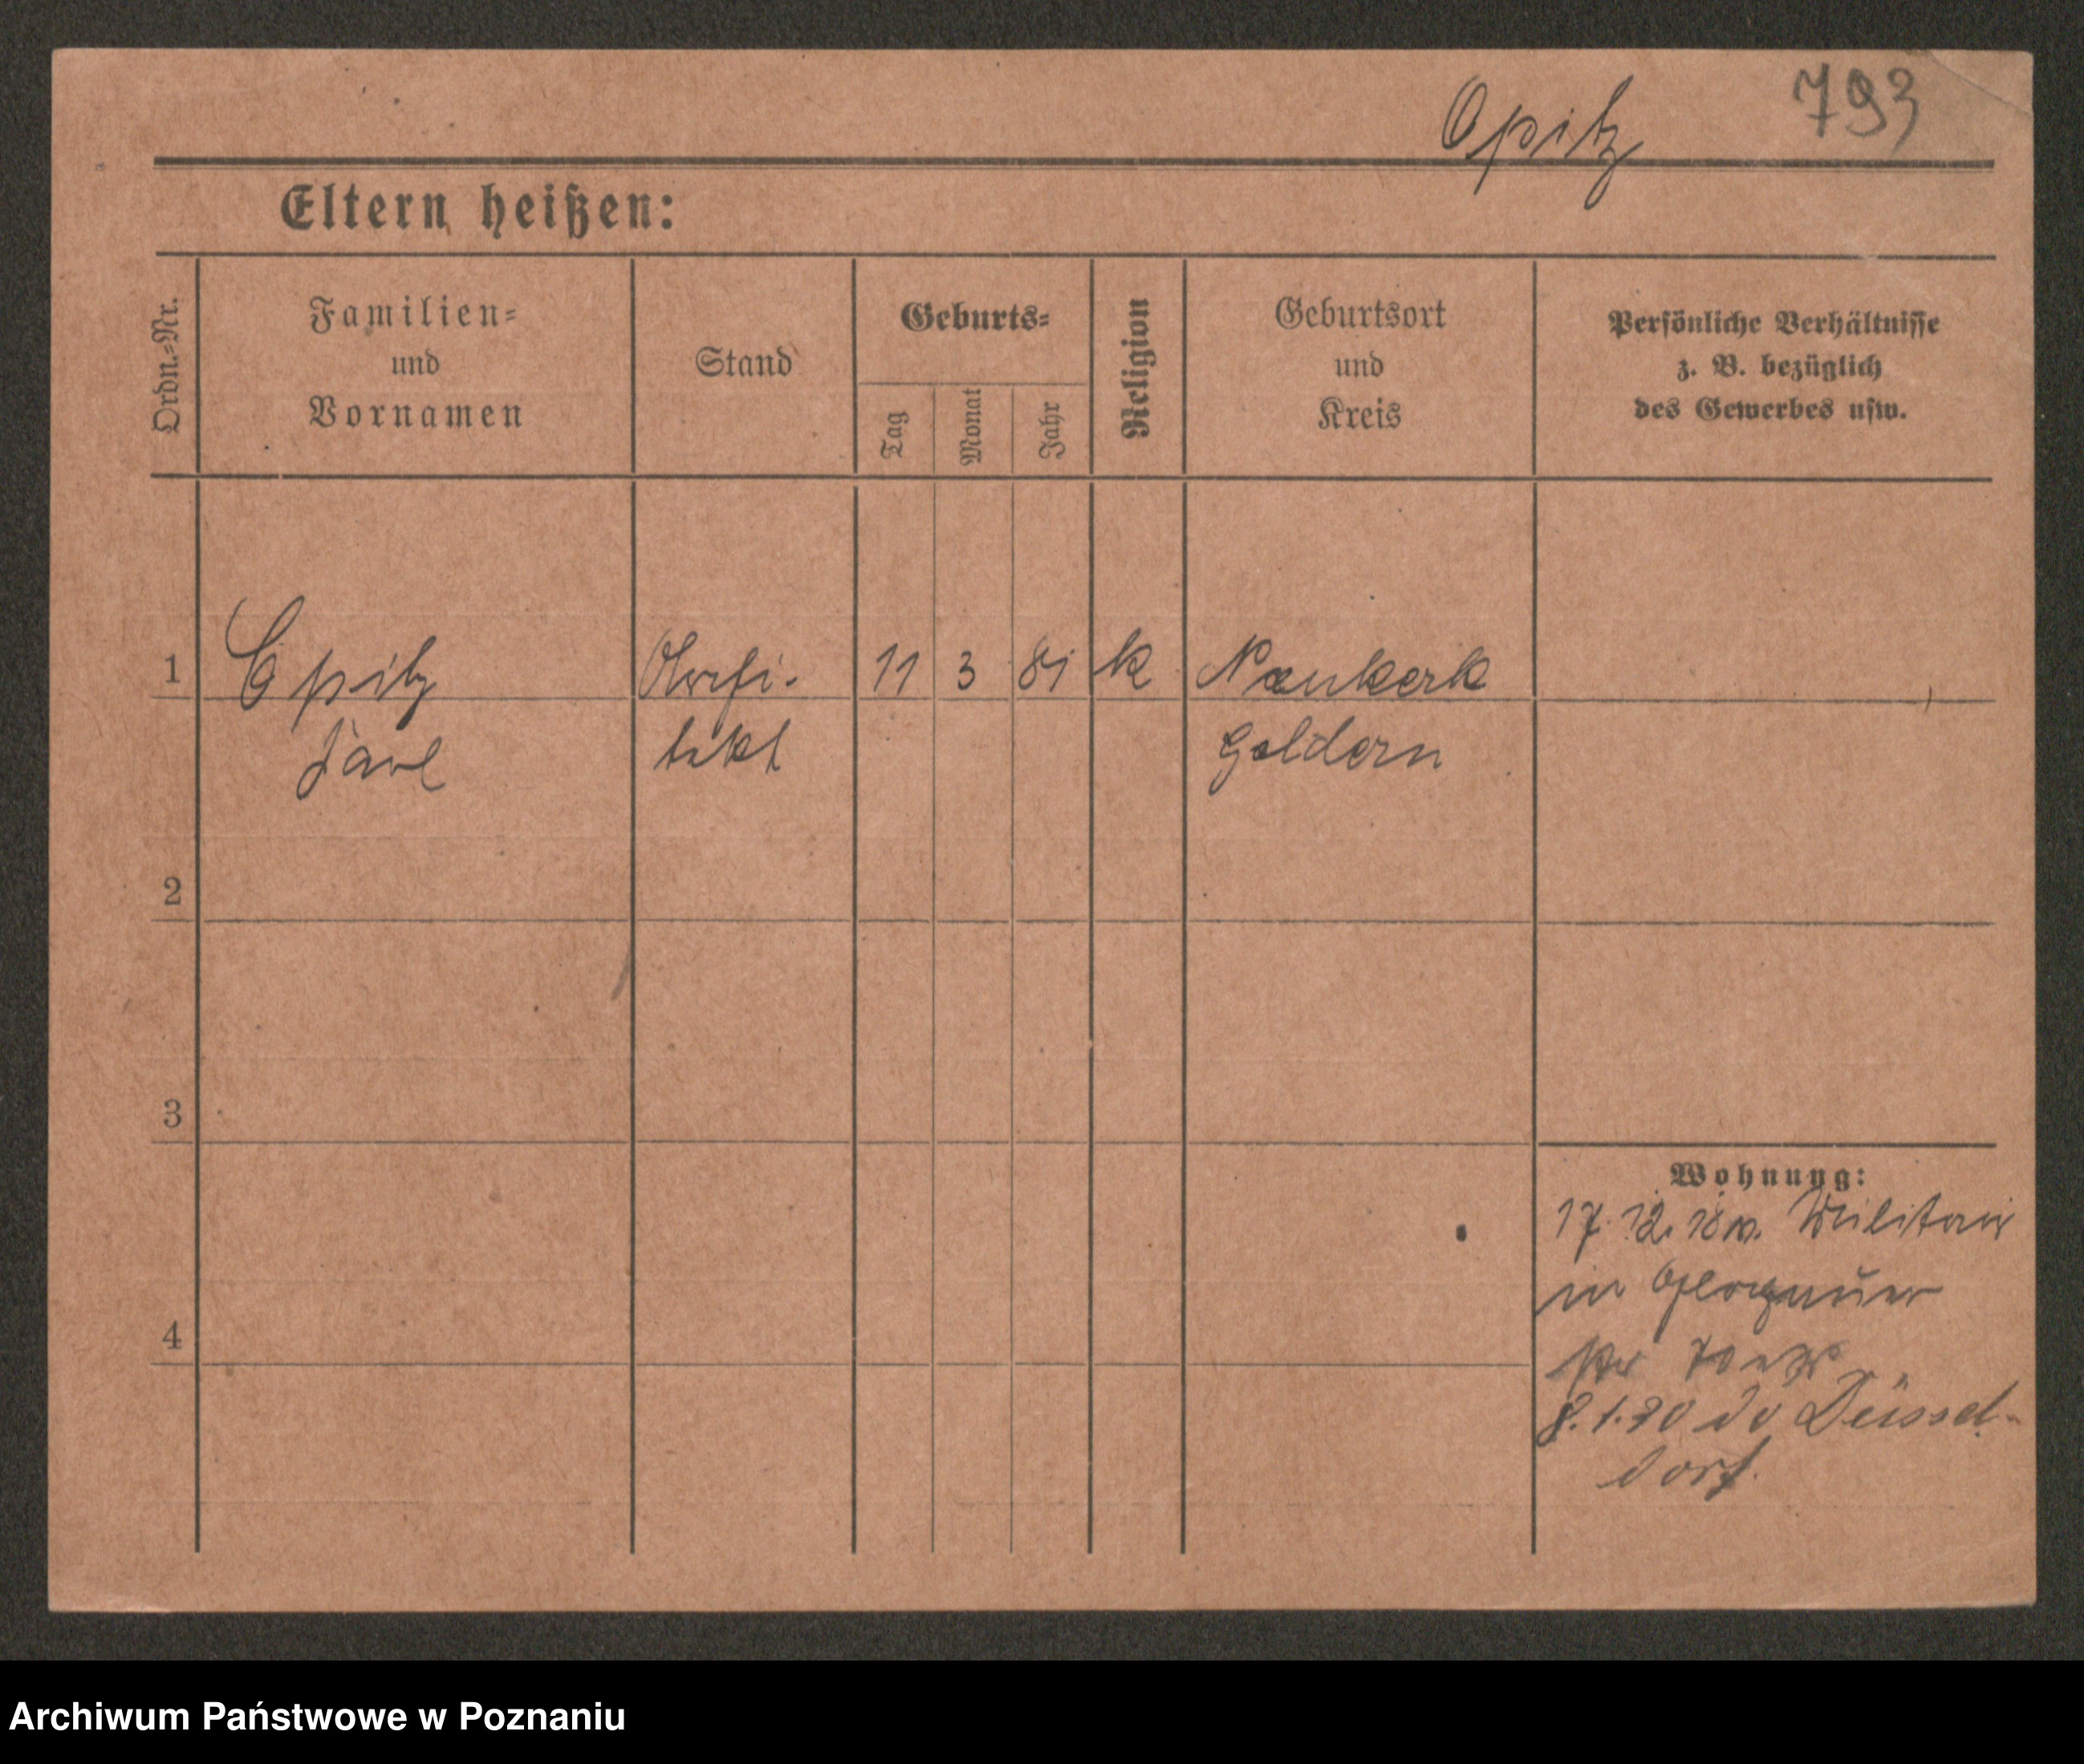 Opitz 793
Eltern heißen:
Ordn.-Nr.
Familien-
und
Vornamen
Stand
Geburts-
Tag
Monat
Jahr
Religion
Geburtsort
und
Kreis
Persönliche Verhältnisse
z. B. bezüglich
des Gewerbes usw.
1 Opitz Archi- 11 3 81 k Neukerk
Paul tekt Geldern
2
3
4
Wohnung:
17. 12. 18 v. Militär
in Glogauer
8.1.20 Düssel-
dorf.
Archiwum Państwowe w Poznaniu